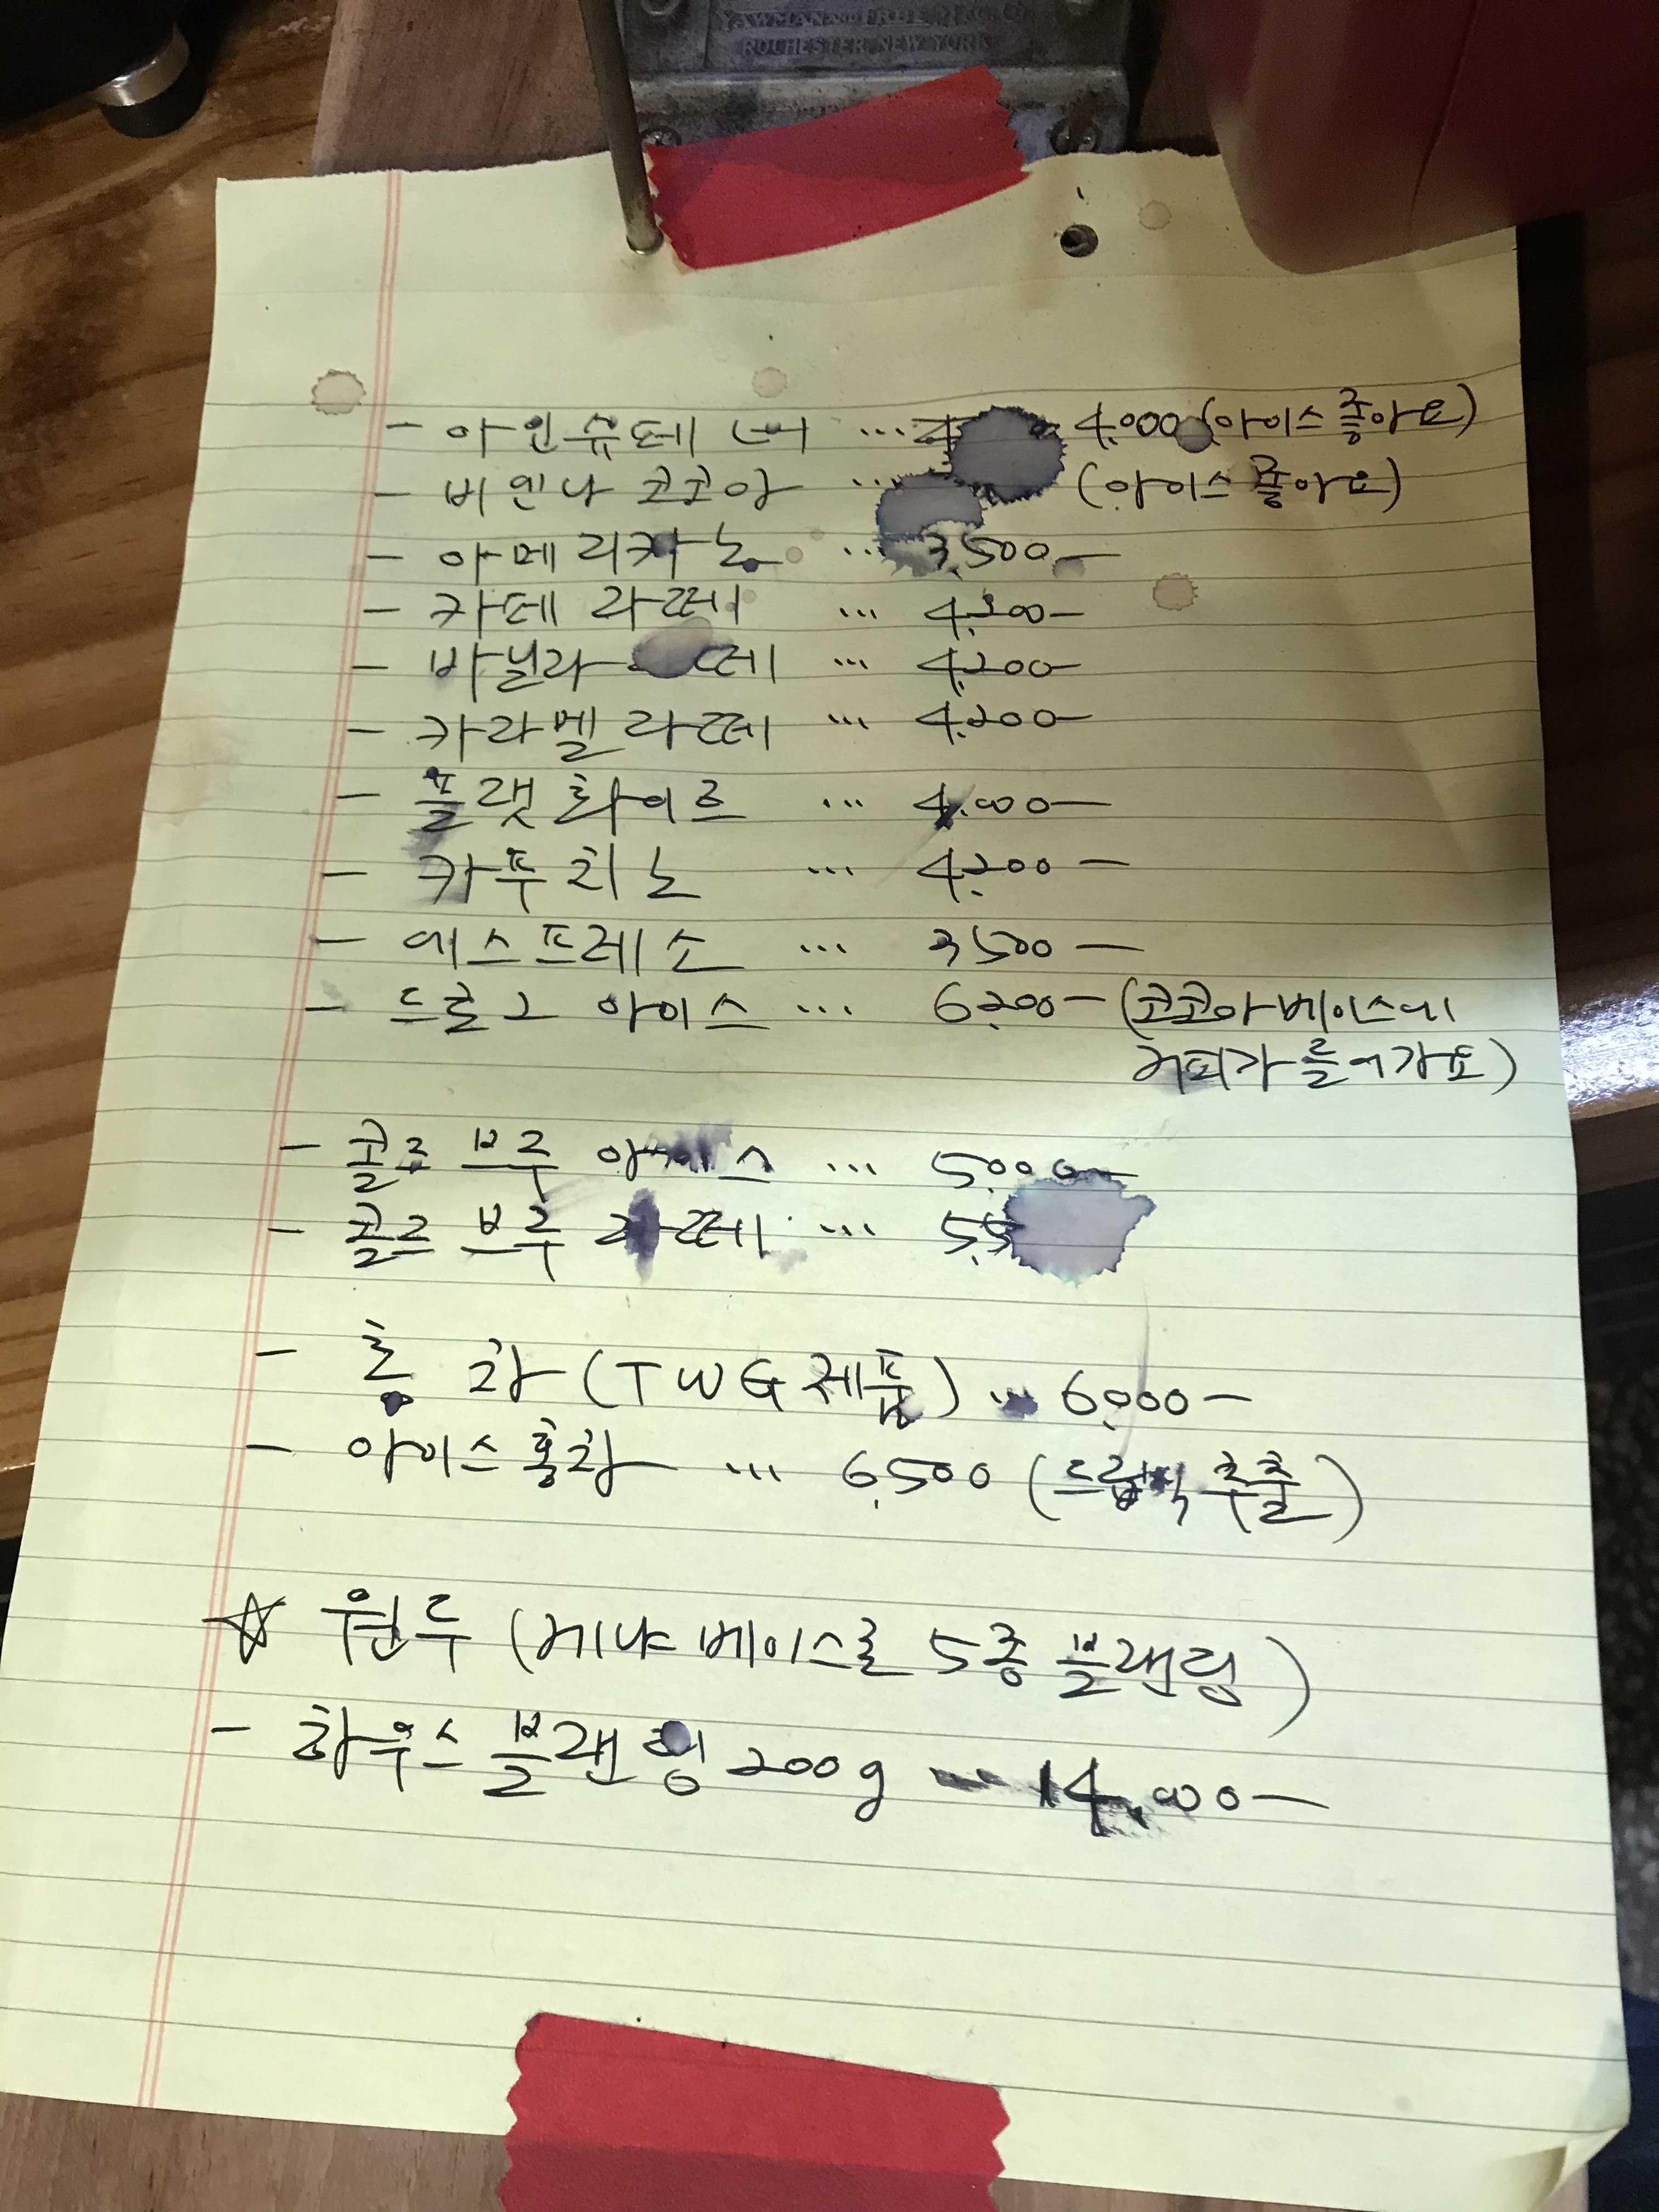 YAWMAN AND ERBE MFG. CO.
ROCHESTER, NEW YORK
- 아인슈페너 ... 4.000 (아이스 좋아요)
- 비엔나 코코아 ... (아이스 좋아요)
- 아메리카노 ... 3.500-
- 카페 라떼 ... 4.200-
- 바닐라 라떼 ... 4.200-
- 카라멜 라떼 ... 4.200-
- 플랫 화이트 ... 4.000-
- 카푸치노 ... 4.200-
- 에스프레소 ... 3500-
- 드로그 아이스 ... 6.200- (코코아 베이스에
커피가 들어가요)
- 콜드 브루 아이스 ... 5.000-
- 콜드 브루 라떼 ... 5.5
- 홍차 (TWG 제품) ... 6.000-
- 아이스 홍차 ... 6.500 (드립식 추출)
☆ 원두 (케냐 베이스로 5종 블랜딩)
- 하우스 블랜딩 200g ... 14.000-